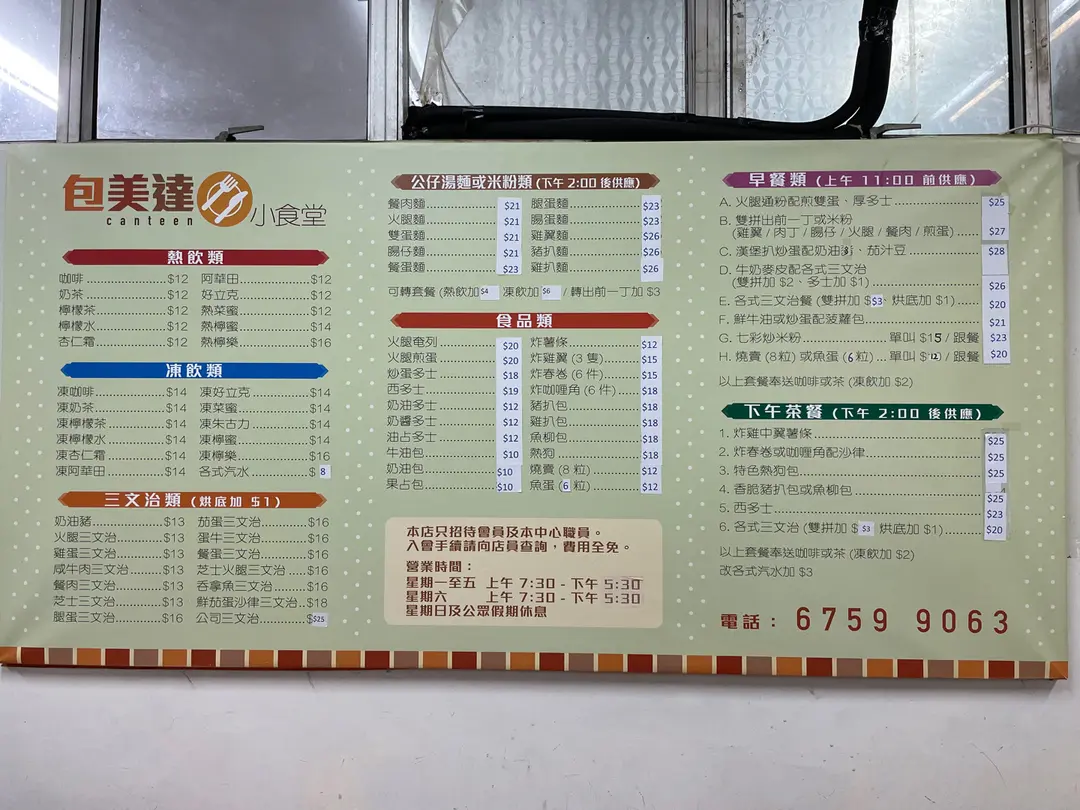 包美達
canteen
小食堂
熱飲類
咖啡............$12 阿華田............$12
奶茶............$12 好立克............$12
檸檬茶............$12 熱菜蜜............$12
檸檬水............$12 熱檸蜜............$14
杏仁霜............$12 熱檸樂............$16
凍飲類
凍咖啡............$14 凍好立克............$14
凍奶茶............$14 凍菜蜜............$14
凍檸檬茶............$14 凍朱古力............$14
凍檸檬水............$14 凍檸蜜............$14
凍杏仁霜............$14 凍檸樂............$16
凍阿華田............$14 各式汽水............$8
三文治類 (烘底加 $1)
奶油豬............$13 茄蛋三文治............$16
火腿三文治............$13 蛋牛三文治............$16
雞蛋三文治............$13 餐蛋三文治............$16
咸牛肉三文治............$13 芝士火腿三文治.....$16
餐肉三文治............$13 吞拿魚三文治............$16
芝士三文治............$13 鮮茄蛋沙律三文治..$18
腿蛋三文治............$16 公司三文治............$25
公仔湯麵或米粉類 (下午 2:00 後供應)
餐肉麵............$21 腿蛋麵............$23
火腿麵............$21 腸蛋麵............$23
雙蛋麵............$21 雞翼麵............$26
腸仔麵............$21 豬扒麵............$26
餐蛋麵............$23 雞扒麵............$26
可轉套餐 (熱飲加 $4 凍飲加 $6 / 轉出前一丁加 $3
食品類
火腿奄列............$20 炸薯條............$12
火腿煎蛋............$20 炸雞翼 (3 隻)............$15
炒蛋多士............$18 炸春卷 (6 件)............$15
西多士............$19 炸咖喱角 (6 件)............$18
奶油多士............$12 豬扒包............$18
奶醬多士............$12 雞扒包............$18
油占多士............$12 魚柳包............$18
牛油包............$10 熱狗............$18
奶油包............$10 燒賣 (8 粒)............$12
果占包............$10 魚蛋 (6 粒)............$12
本店只招待會員及本中心職員。
入會手續請向店員查詢，費用全免。
營業時間：
星期一至五 上午 7:30 - 下午 5:30
星期六 上午 7:30 - 下午 5:30
星期日及公眾假期休息
早餐類 (上午 11:00 前供應)
A. 火腿通粉配煎雙蛋、厚多士............$25
B. 雙拼出前一丁或米粉
(雞翼 / 肉丁 / 腸仔 / 火腿 / 餐肉 / 煎蛋)......$27
C. 漢堡扒炒蛋配奶油豬、茄汁豆............$28
D. 牛奶麥皮配各式三文治
(雙拼加 $2、多士加 $1)............$26
E. 各式三文治餐 (雙拼加 $3、烘底加 $1).....$20
F. 鮮牛油或炒蛋配菠蘿包............$21
G. 七彩炒米粉............單叫 $15 / 跟餐 $23
H. 燒賣 (8粒) 或魚蛋 (6粒)...單叫 $12 / 跟餐 $20
以上套餐奉送咖啡或茶 (凍飲加 $2)
下午茶餐 (下午 2:00 後供應)
1. 炸雞中翼薯條............$25
2. 炸春卷或咖喱角配沙律............$25
3. 特色熱狗包............$25
4. 香脆豬扒包或魚柳包............$25
5. 西多士............$23
6. 各式三文治 (雙拼加 $3 烘底加 $1)......$20
以上套餐奉送咖啡或茶 (凍飲加 $2)
改各式汽水加 $3
電話： 6759 9063